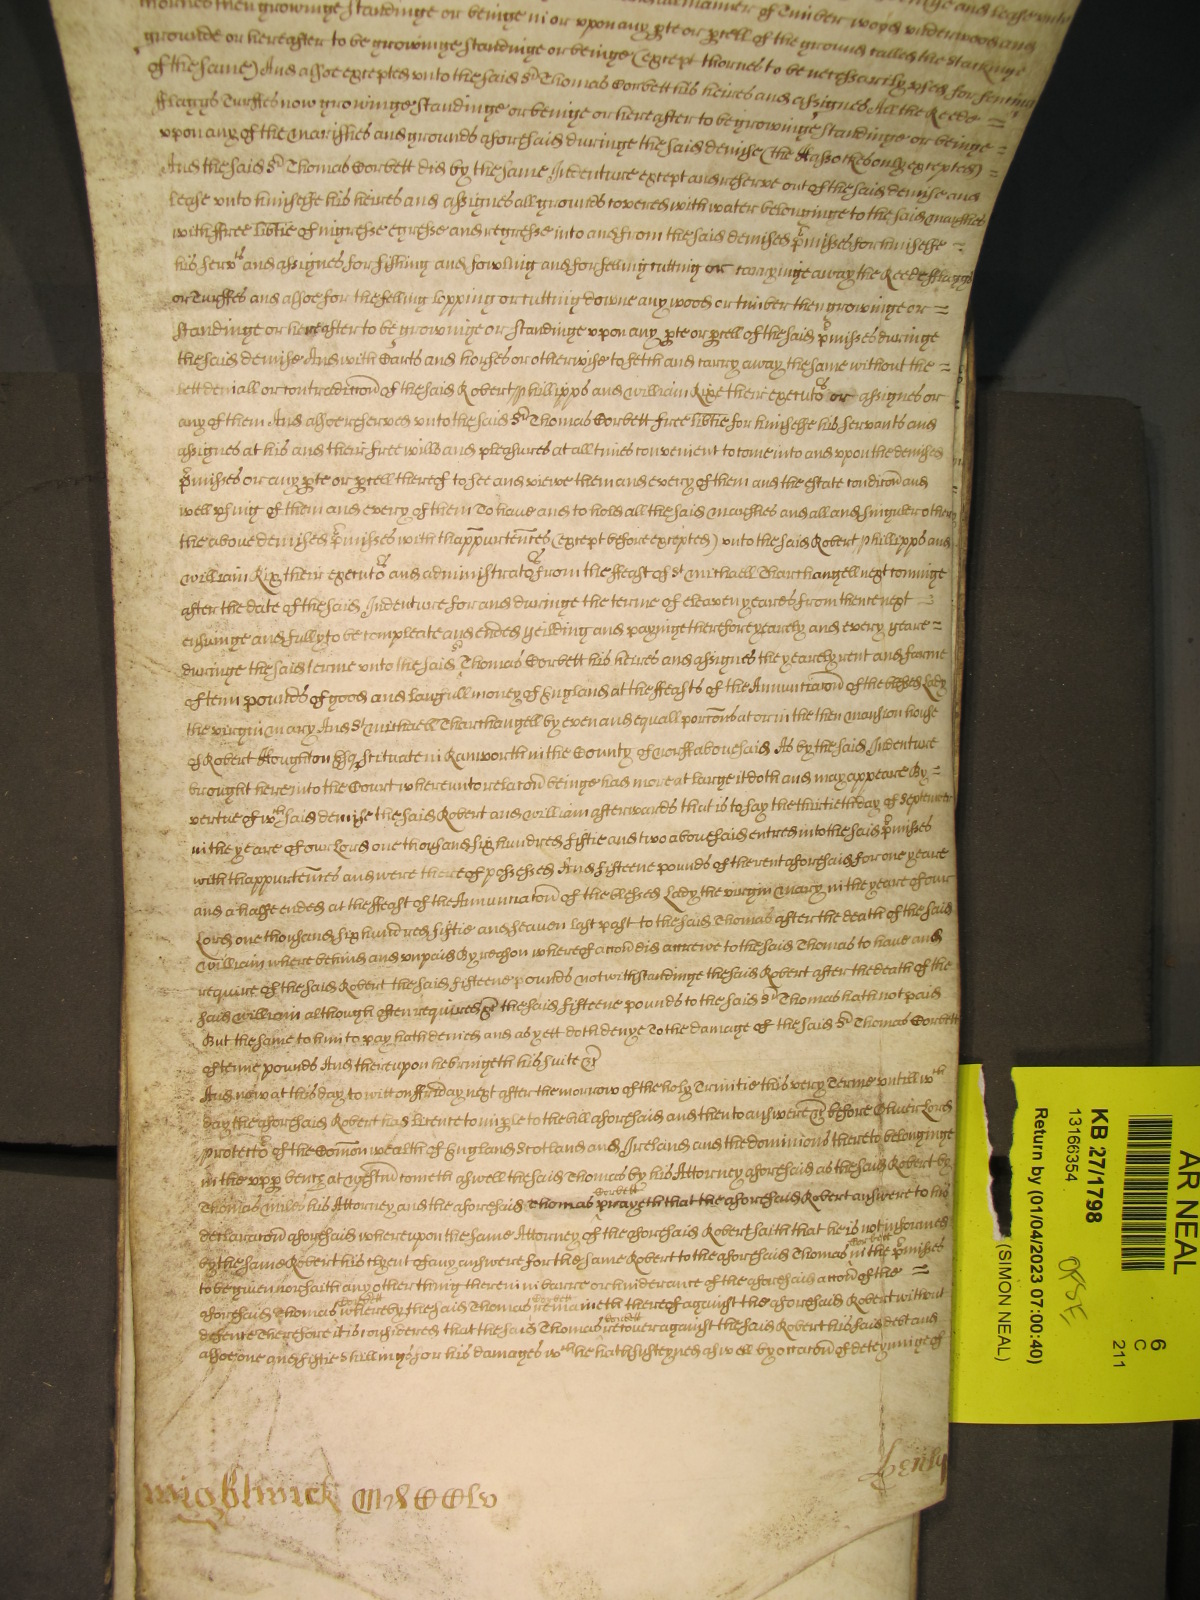 thornes then growinge standinge or beinge in or upon any pte or pcell of the ground called the Stackinge
grounde or hereafter to be growinge standinge or beinge (except thornes to be necessarily used for fencinge
of the same) And alsoe excepted unto the said Sr Thomas Corbett his heires and assignes All the Reede =
fflaggs Turffes now growinge standinge or beinge or hereafter to be growinge standinge or beinge =
upon any of the Marishes and grounds aforesaid duringe the said demise (the Hassockes only excepted) =
And the said Sr Thomas Corbett did by the same Indenture except and reserve out of the said demise and
lease unto himselfe his heires and assignes all grounds covered with water belonginge to the said Marshes
with ffree libtie of ingresse egresse and regresse into and from the said demised pmisses for himselfe =
his servts and assignes for fishing and fowling and for felling cutting or carryinge away the Reede fflaggs
or Turffes and alsoe for the felling lopping or cutting downe any wood or timber then growinge or =
standinge or hereafter to be growinge or standinge upon any pte or pcell of the said pmisses duringe
the said demise And with Carts and horses or otherwise to fetch and carry away the same without the =
lett deniall or contradiccon of the said Robert Phillipps and William Rix their executors or assignes or
any of them And alsoe reserved unto the said Sr Thomas Corbett free libtie for himselfe his servants and
assignes at his and their free wills and pleasures at all times convenient to come into and upon the demised
pmisses or any pte or pcell thereof to see and viewe them and every of them and the estate condicon and
well using of them and every of them To have and to hold all the said Marshes and all and singuler other
the above demised pmisses with thappurtences (except before excepted) unto the said Robert Phillipps and
William Rix their executors and administrators from the ffeast of St Michaell Tharchangell next cominge
after the date of the said Indenture for and duringe the terme of eleaven yeares from thence next =
ensuinge and fully to be compleate and ended yeilding and payinge therefore yearely and every yeare =
duringe the said terme unto the said Thomas Corbett his heires and assignes the yearely rent and farme
of tenn pounds of good and lawfull money of England at the ffeasts of the Annunciacon of the blessed Lady
the virgin mary And St Michaell Tharchangell by even and equall porcons at or in the then mansion house
of Robert Houghton Esq scituate in Ranworth in the County of Norff abovesaid As by the said Indenture
brought here into the Court whereunto relacon beinge had more at large it doth and may appeare By =
vertue of wch said demise the said Robert and William afterwards that is to say the thirtieth day of September
in the yeare of our Lord one thousand six hundred fiftie and two abovesaid entred into the said pmisses
with thappurtences and were thereof possessed And fifteene pounds of the rent aforesaid for one yeare
and a halfe ended at the ffeast of the Annunciacon of the blessed Lady the virgin Mary in the yeare of our
Lord one thousand six hundred fiftie and seaven last past to the said Thomas after the death of the said
William where behind and unpaid By reason whereof accon did accrewe to the said Thomas to have and
require of the said Robert the said fifteene pounds notwithstandinge the said Robert after the death of the
said William although often required &c the said fifteene pounds to the said Sr Thomas hath not paid
But the same to him to pay hath denied and as yett doth denye To the damage of the said Sr Thomas Corbett
of tenne pounds And thereupon he bringeth his suite &c
And now at this day to witt on ffriday next after the morrow of the holy Trinitie this very Terme untill wch
day the aforesaid Robert had licence to imple to the bill aforesaid and then to answere &c before Oliver Lord
protector of the Comon wealth of England Scotland and Ireland and the dominions thereto belonginge
in the upp bench at Westm cometh aswell the said Thomas by his Attorney aforesaid as the said Robert by
Thomas Miles his Attorney and the aforesaid Thomas Corbett prayeth that the aforesaid Robert answere to his
declaracon aforesaid whereupon the same Attorney of the aforesaid Robert saith that he is not informed
by the same Robert his clyent of any answere for the same Robert to the aforesaid Thomas Corbett in the pmisses
to be given nor saith any other thing therein in barre or hinderance of the aforesaid accon of the =
aforesaid Thomas Corbett whereby the said Thomas Corbett remaineth thereof against the aforesaid Robert without
defence Therefore it is considered that the said Thomas Corbett recover against the said Robert his said debt and
alsoe one and fiftie shillings for his damages wch he hath susteyned aswell by occacon of deteyninge of
Wightwick
AR NEAL
KB 27/1798
13166354
Return by (01/04/2023 07:00:40)
(SIMON NEAL)
6
C
211